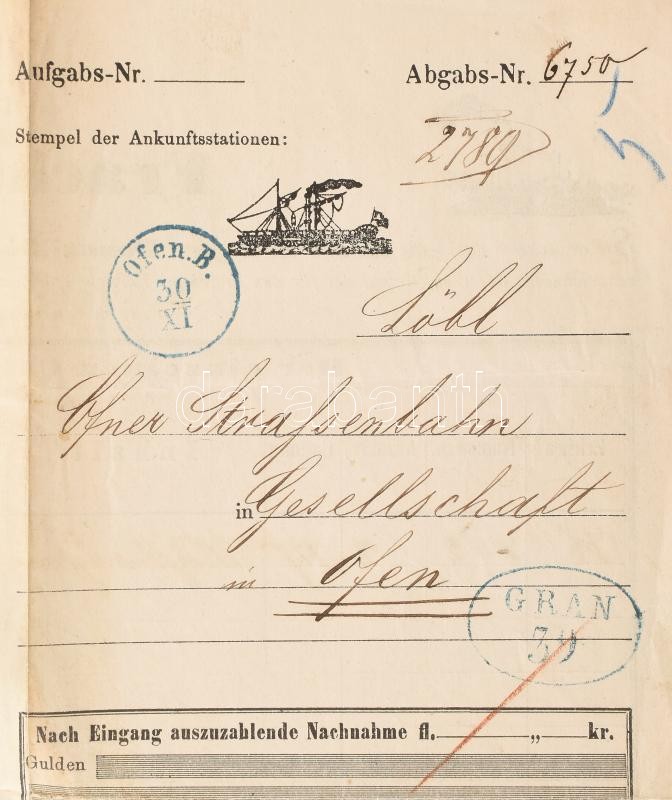 Aufgabs-Nr.
Abgabs-Nr. 6750
Stempel der Ankunftsstationen:
2789
Ofen.B.
30
XI
Löbl
darabanth
Ofner Strassenbahn
in Gesellschaft
in Ofen
GRAN
30
Nach Eingang auszuzahlende Nachnahme fl. „ kr.
Gulden